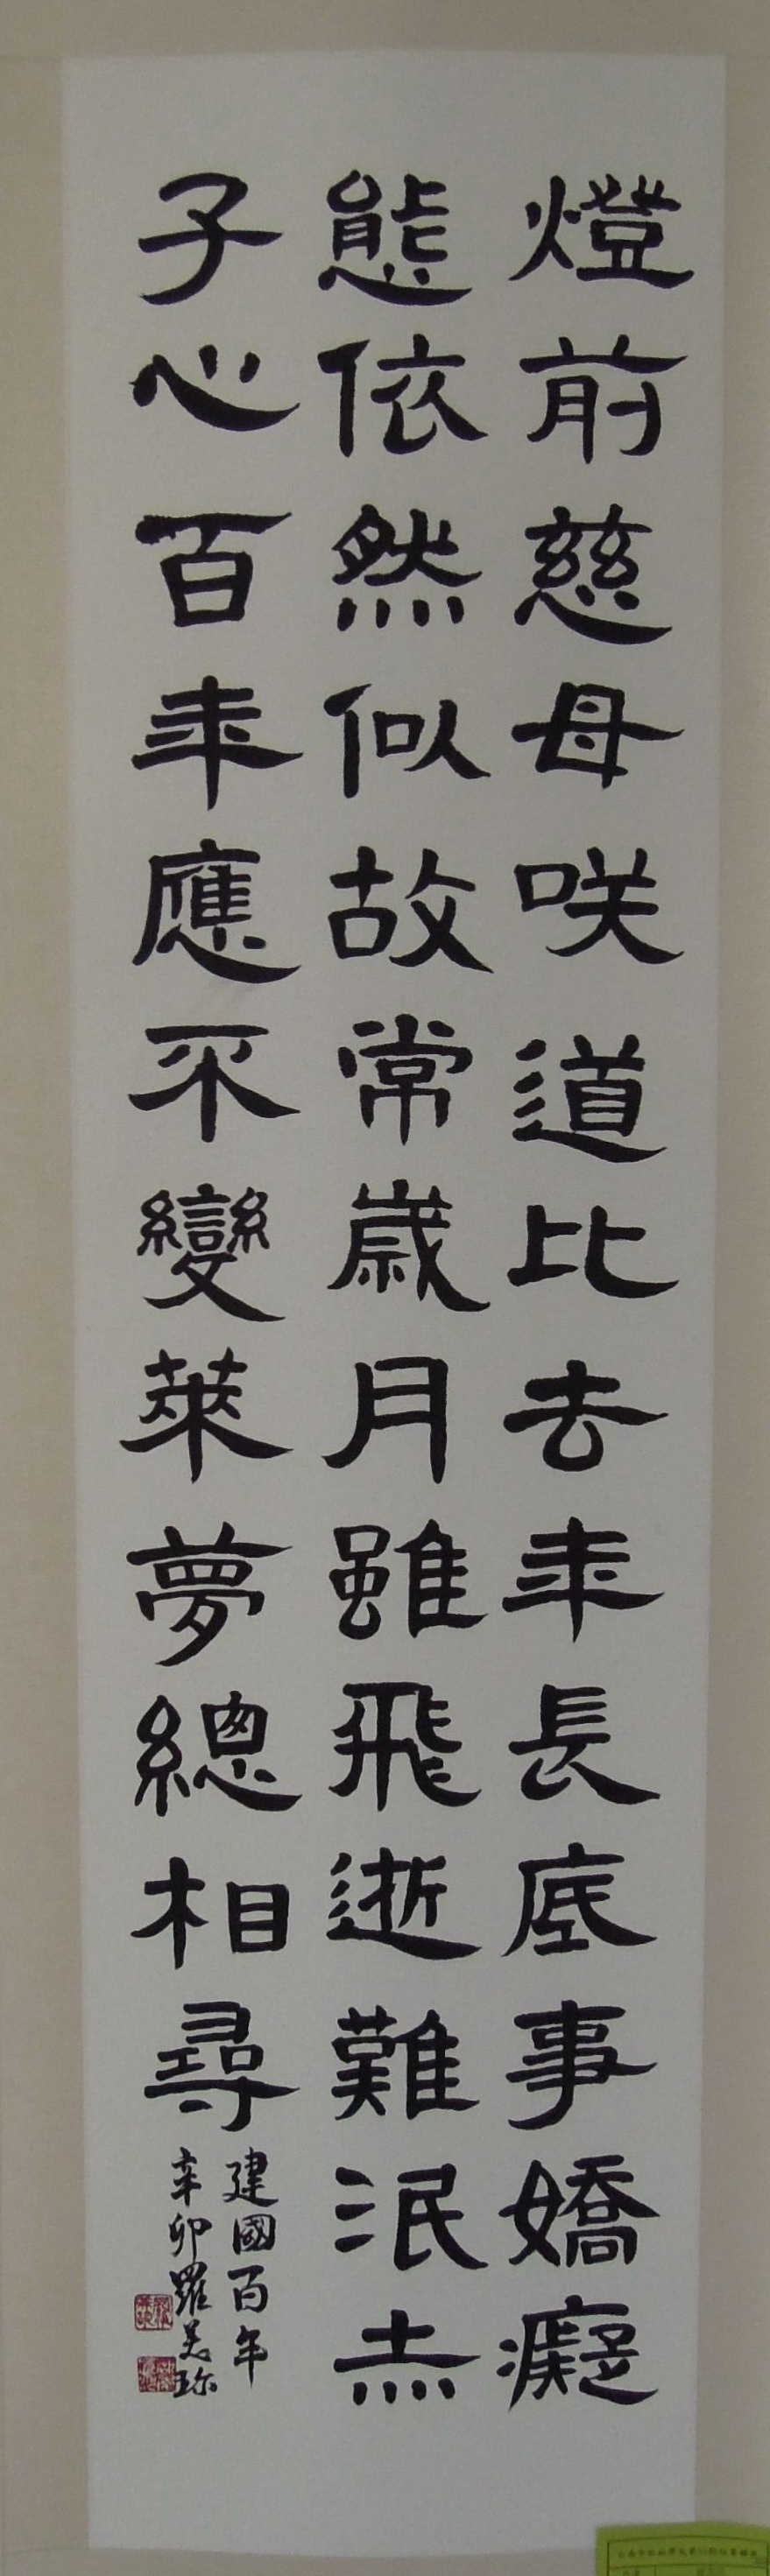 燈前慈母咲道比去年長底事嬌癡
態依然似故常歲月雖飛逝難泯赤
子心百年應不變萊夢總相尋
建國百年
辛卯羅美珍